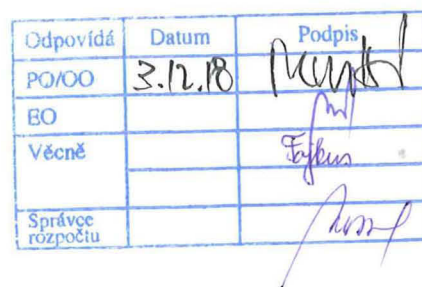 Odpovídá Datum Podpis
PO/OO 3.12.18
EO
Věcně Fajkus
Správce
rozpočtu